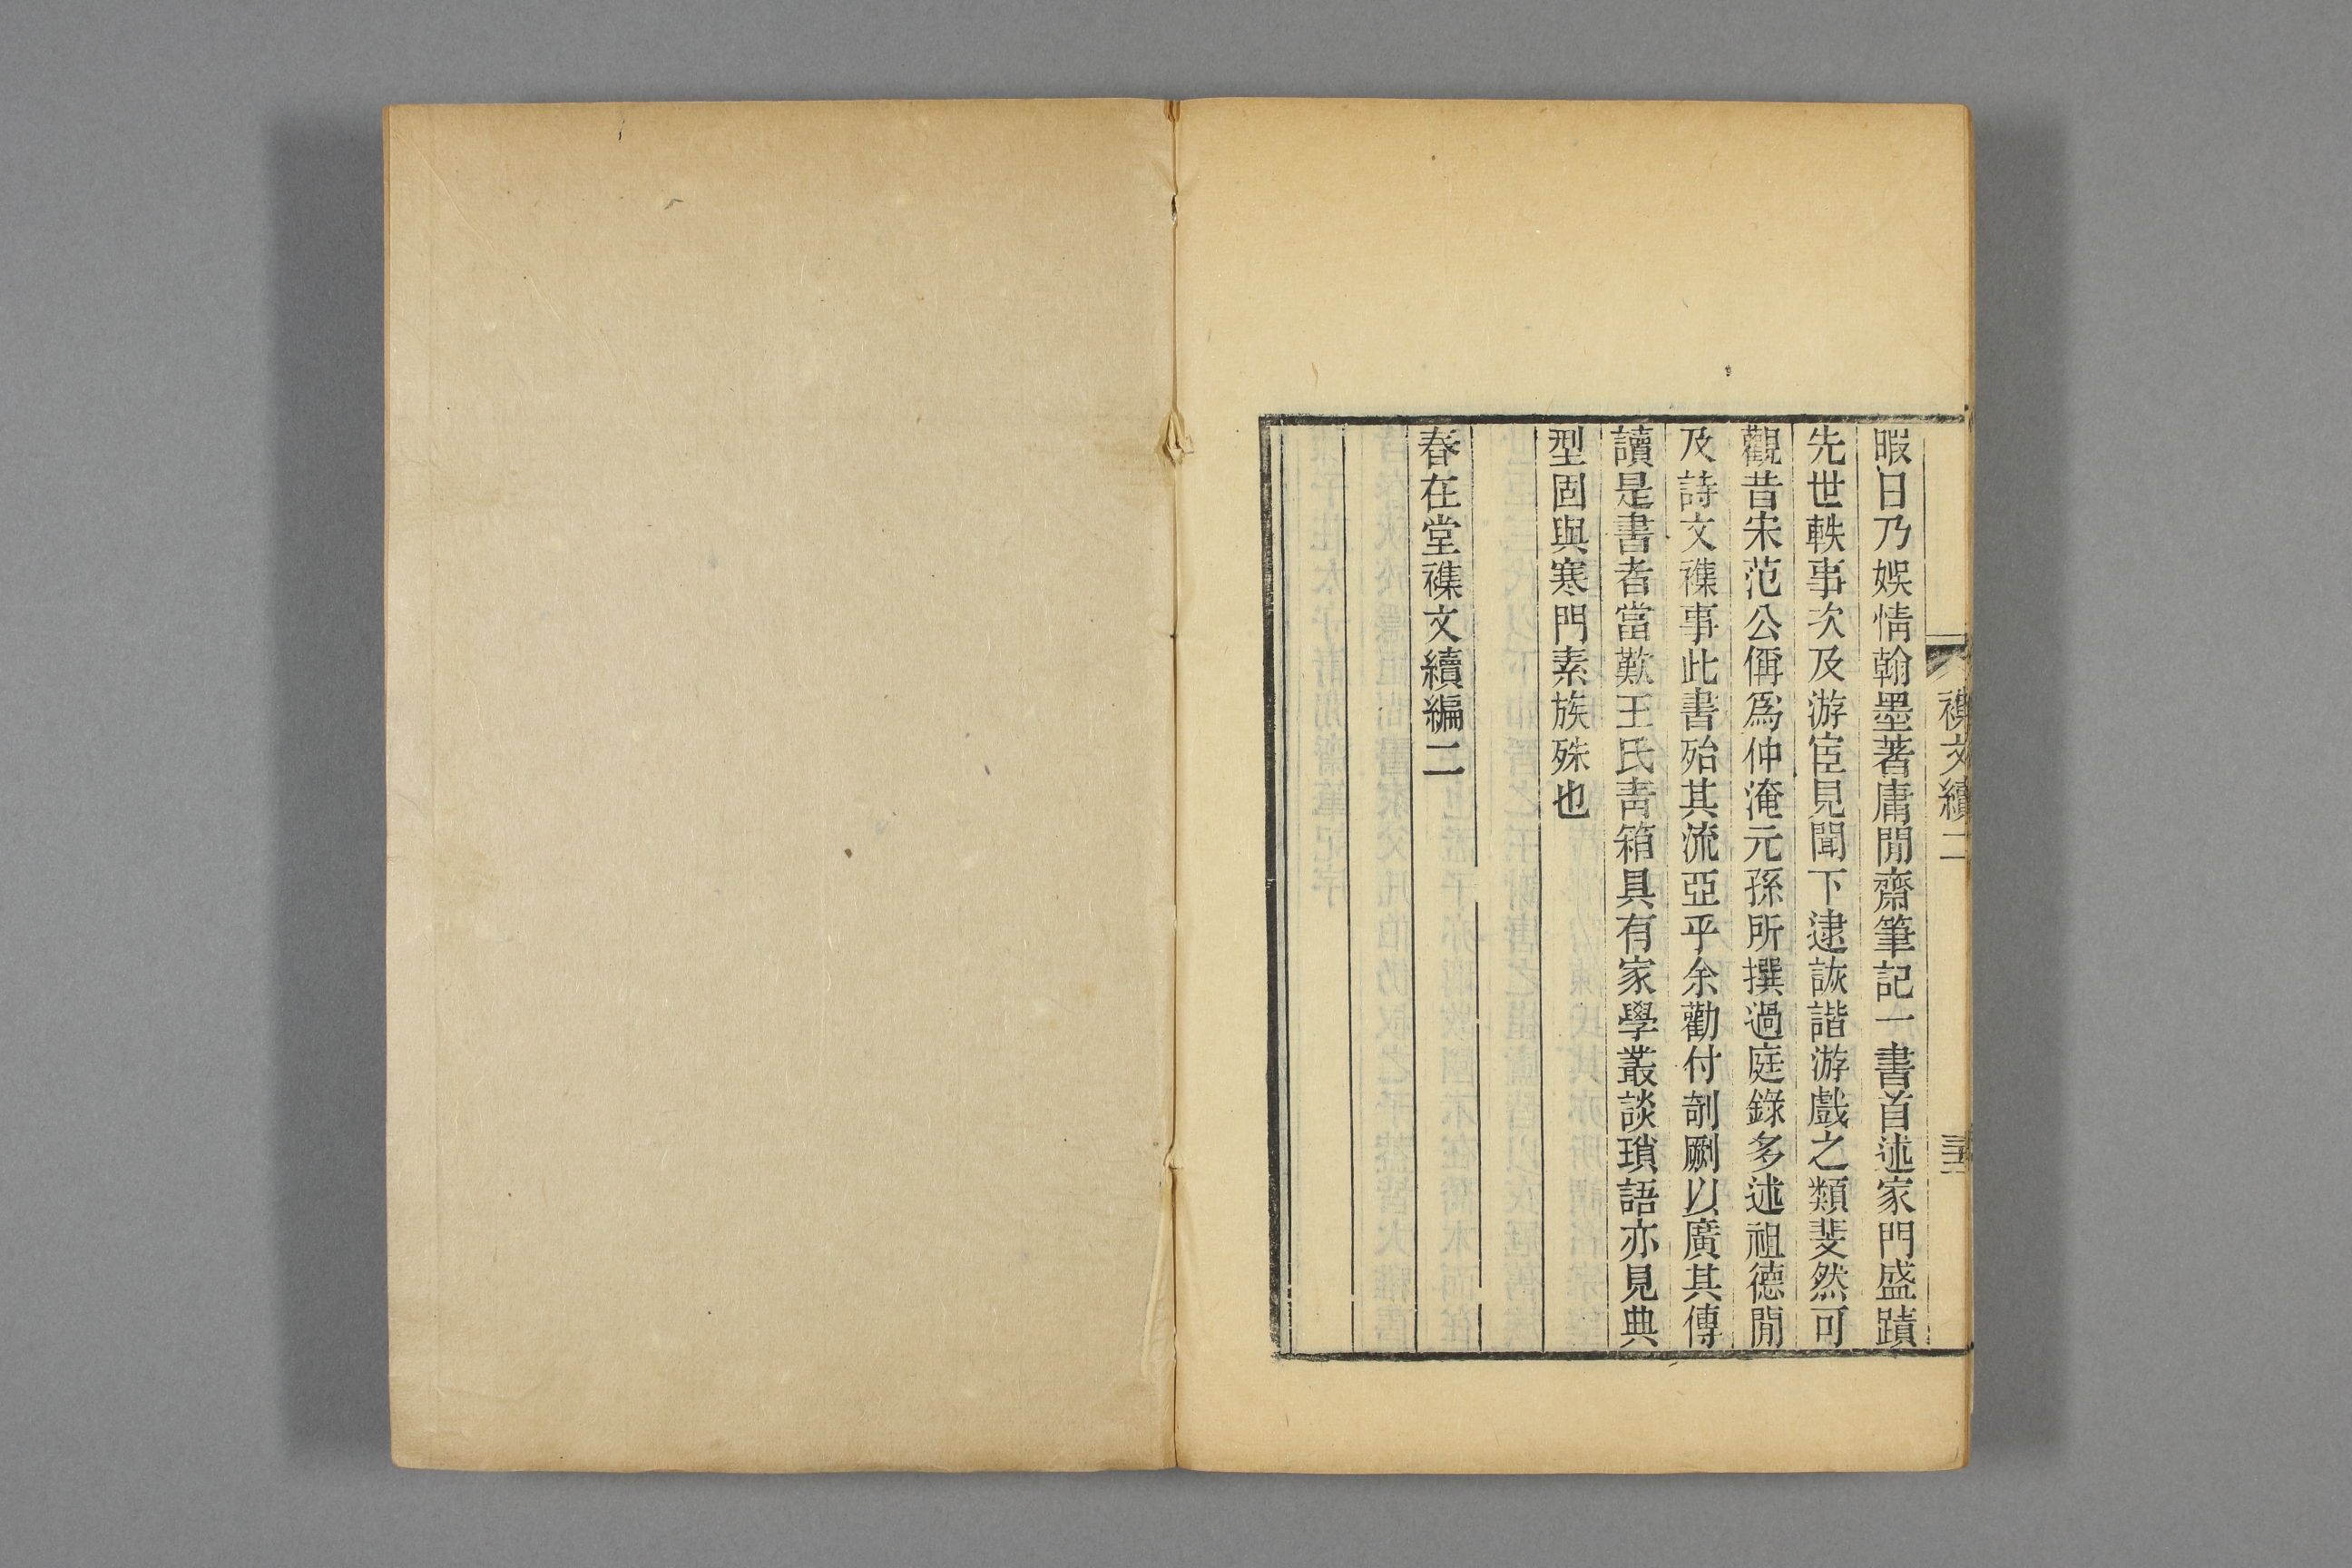 襍文續二
三十五
暇日乃娛情翰墨著庸閒齋筆記一書首述家門盛蹟
先世軼事次及游宦見聞下逮詼諧游戲之類斐然可
觀昔宋范公偁爲仲淹元孫所撰過庭錄多述祖德閒
及詩文襍事此書殆其流亞乎余勸付剞劂以廣其傳
讀是書者當歎王氏靑箱具有家學叢談瑣語亦見典
型固與寒門素族殊也
春在堂襍文續編二